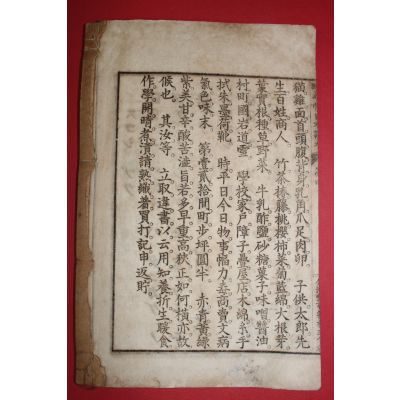 猫雞面首頭腹背身乳角爪足肉卵。 子供太郎先
生百姓商人。 竹茶椿藤桃櫻柿菜菊藍綿大根芽
葉實根種草野菜 牛乳酢鹽砂糖菓子味噌醬油
村町國岩道雪 學校家戶障子疊屋店木綿糸手
拭朱墨荷靴 時平日今日物事幅力毒商賣文病
氣色味末 第壹貳拾間町步坪圓半 赤青黃綠
紫美甘辛酸苦澁旨若多早重高秩正如何橫亦故
候也。 其汝等 立取違書以云用知養折生暖食
作學開晴者濱請熟織着買打記申返貯。